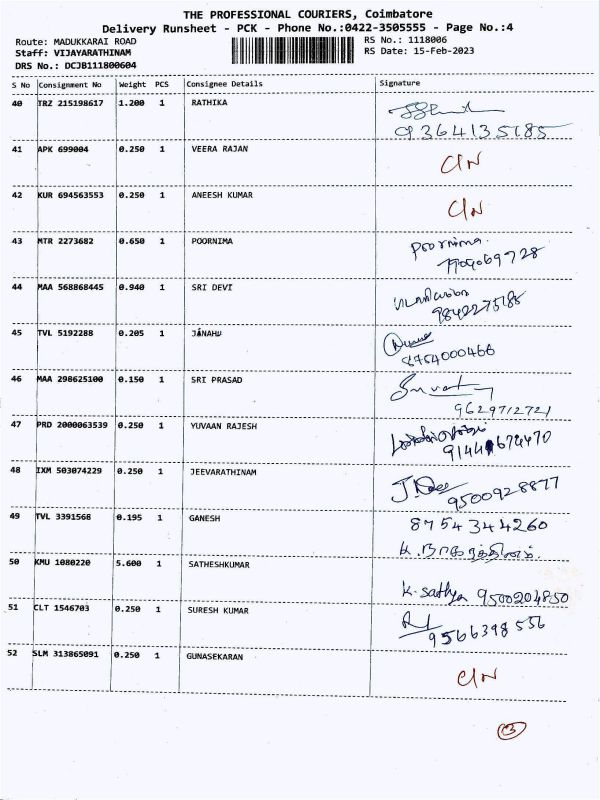 THE PROFESSIONAL COURIERS, Coimbatore
Delivery Runsheet - PCK - Phone No.:0422-3505555 - Page No.:4
Route: MADUKKARAI ROAD RS No.: 1118006
Staff: VIJAYARATHINAM RS Date: 15-Feb-2023
DRS No.: DCJB111800604
S No Consignment No Weight PCS Consignee Details Signature
40 TRZ 215198617 1.200 1 RATHIKA
9364135185
41 APK 699004 0.250 1 VEERA RAJAN C/N
42 KUR 694563553 0.250 1 ANEESH KUMAR C/N
43 MTR 2273682 0.650 1 POORNIMA Poornima.
44 MAA 568868445 0.940 1 SRI DEVI
9842275185
45 TVL 5192288 0.205 1 JANAHU
8754000466
46 MAA 298625100 0.150 1 SRI PRASAD
9629712721
47 PRD 2000063539 0.250 1 YUVAAN RAJESH
48 IXM 503074229 0.250 1 JEEVARATHINAM
9500928877
49 TVL 3391568 0.195 1 GANESH 8754344260
50 KMU 1080220 5.600 1 SATHESHKUMAR
K. Sathya 9500204850
51 CLT 1546703 0.250 1 SURESH KUMAR
9566398556
52 SLM 313865091 0.250 1 GUNASEKARAN C/N
13